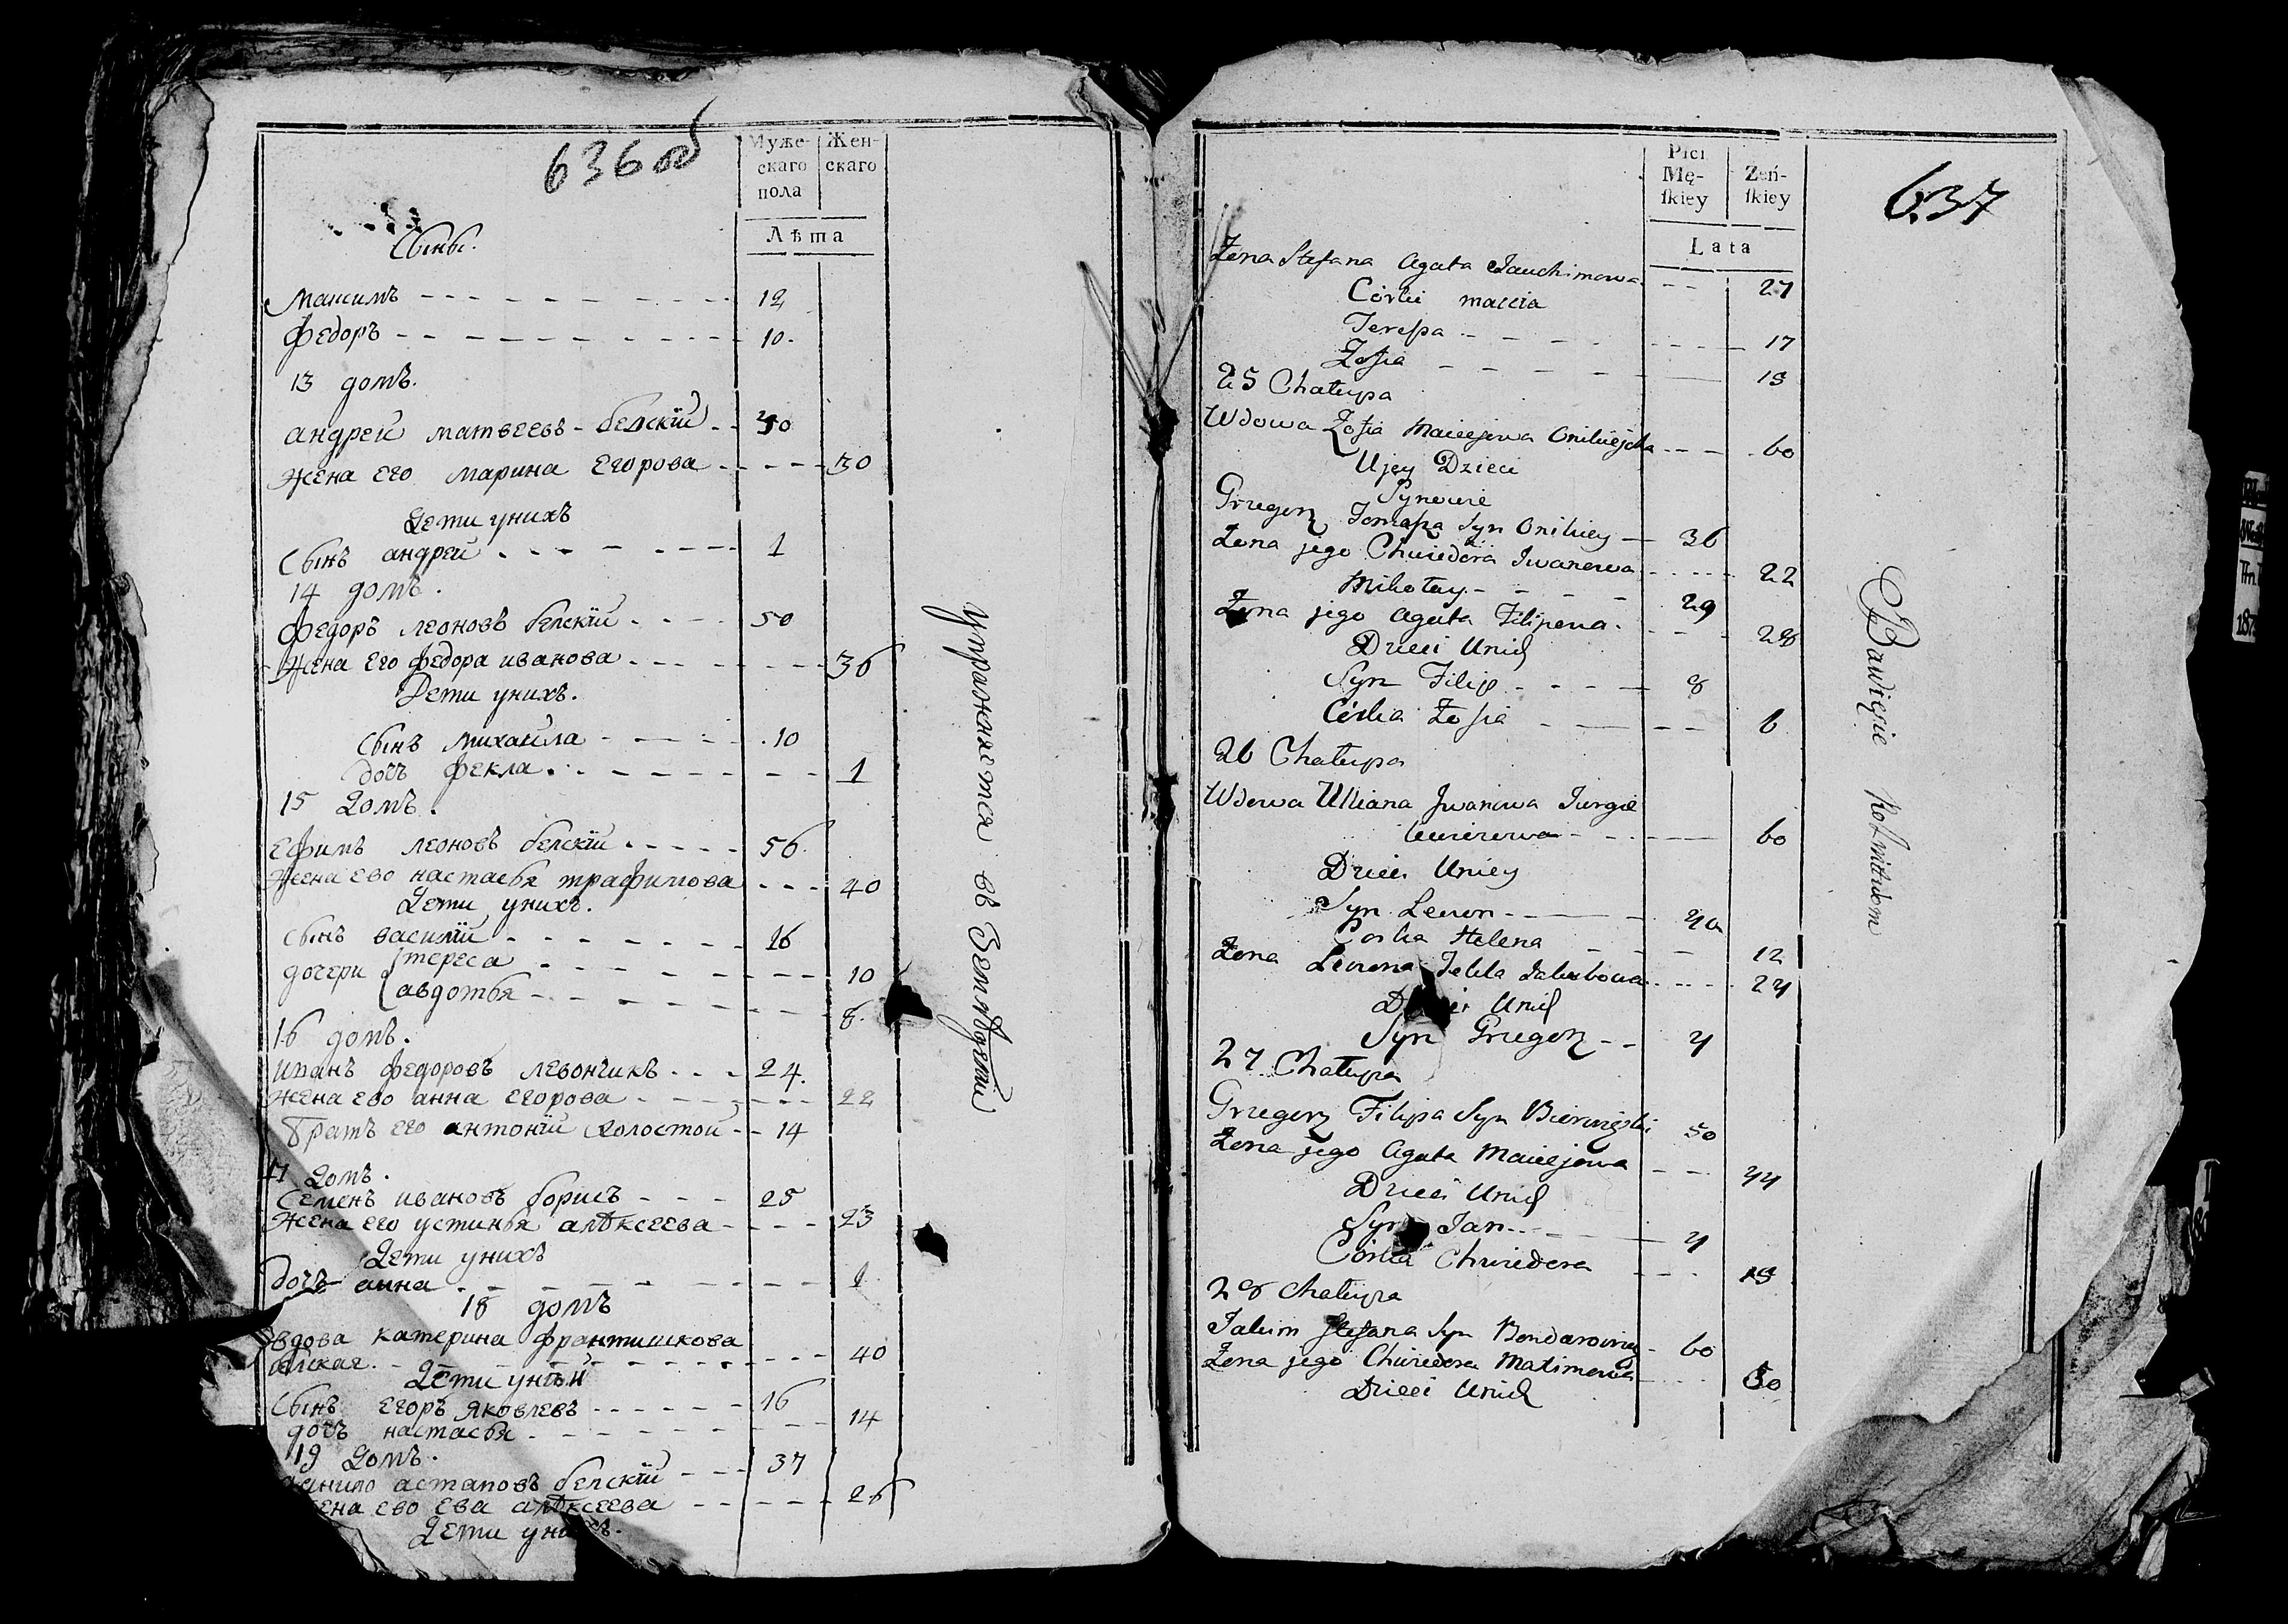 636 об
Муже- Жен-
скаго скаго
пола
Лѣта
Сынъ.
Максимъ 12
Федоръ 10.
13 домъ.
андрей матвеевъ белскiй 40
жена его марина Егорова 30
Дети унихъ
Сынъ андрей 1
14 домъ.
федоръ леоновъ белскiй 50
жена его федора иванова 36
Дети унихъ.
Сынъ михайла 10
дочь фекла 1
15 Домъ.
Ефимъ леоновъ белскiй 56
жена ево настасья трафимова 40
Дети унихъ.
сынъ василiй 16
дочери тереса 10
авдотья 8.
16 домъ.
иванъ федоровъ левончикъ 24.
жена ево анна егорова 22
братъ его антонiй холостой 14
17 Домъ.
Семенъ ивановъ борисъ 25
жена его устинья алѣксеева 23
Дети унихъ
дочь анна 1
18 домъ
вдова катерина франтишкова
40
Дети унѣй
Сынъ егоръ яковлевъ 16
дочь настасья 14
19 Домъ.
астаповъ белскiй 37
жена ево ева алѣксеева 26
Дети унихъ.
упражняется въ Земледѣлiи
637
Płci Żeń-
Mę- ſkiey
ſkiey
Lata
Zona Stefana Agata Jauchimowa 27
Córki
Teressa 17
Zofia 15
25 Chałupa
Wdowa Zofia Maciejowa 60
U jey Dzieci
Synowie
Grzegorz Tomasza Syn Onikiey 36
Zona jego Chwiedora Iwanowa 22
Mikołay 29
Zona jego Agata Filipowa 28
Dzieci Unich
Syn Filip 8
Córka Zofia 6
26 Chałupa
Wdowa Ulliana Jwanowa Jurgie
lewiczowa 60
Dzieci Uniey
Syn Lewon 40
Corka Helena 12
Zona Lewona Tekla Jakubowa 24
Dzieci Unich
Syn Grzegorz 4
27 Chałupa
Grzegorz Filipa Syn 50
Zona jego Agata Maciejowa 44
Dzieci Unich
Syn Jan 4
Córka Chwiedora 15
28 Chałupa
Jakim Stefana Syn Bondarowicz 60
Zona jego Chwiedora Maximowa 50
Dzieci Unich
Bawią się Rolnictwem